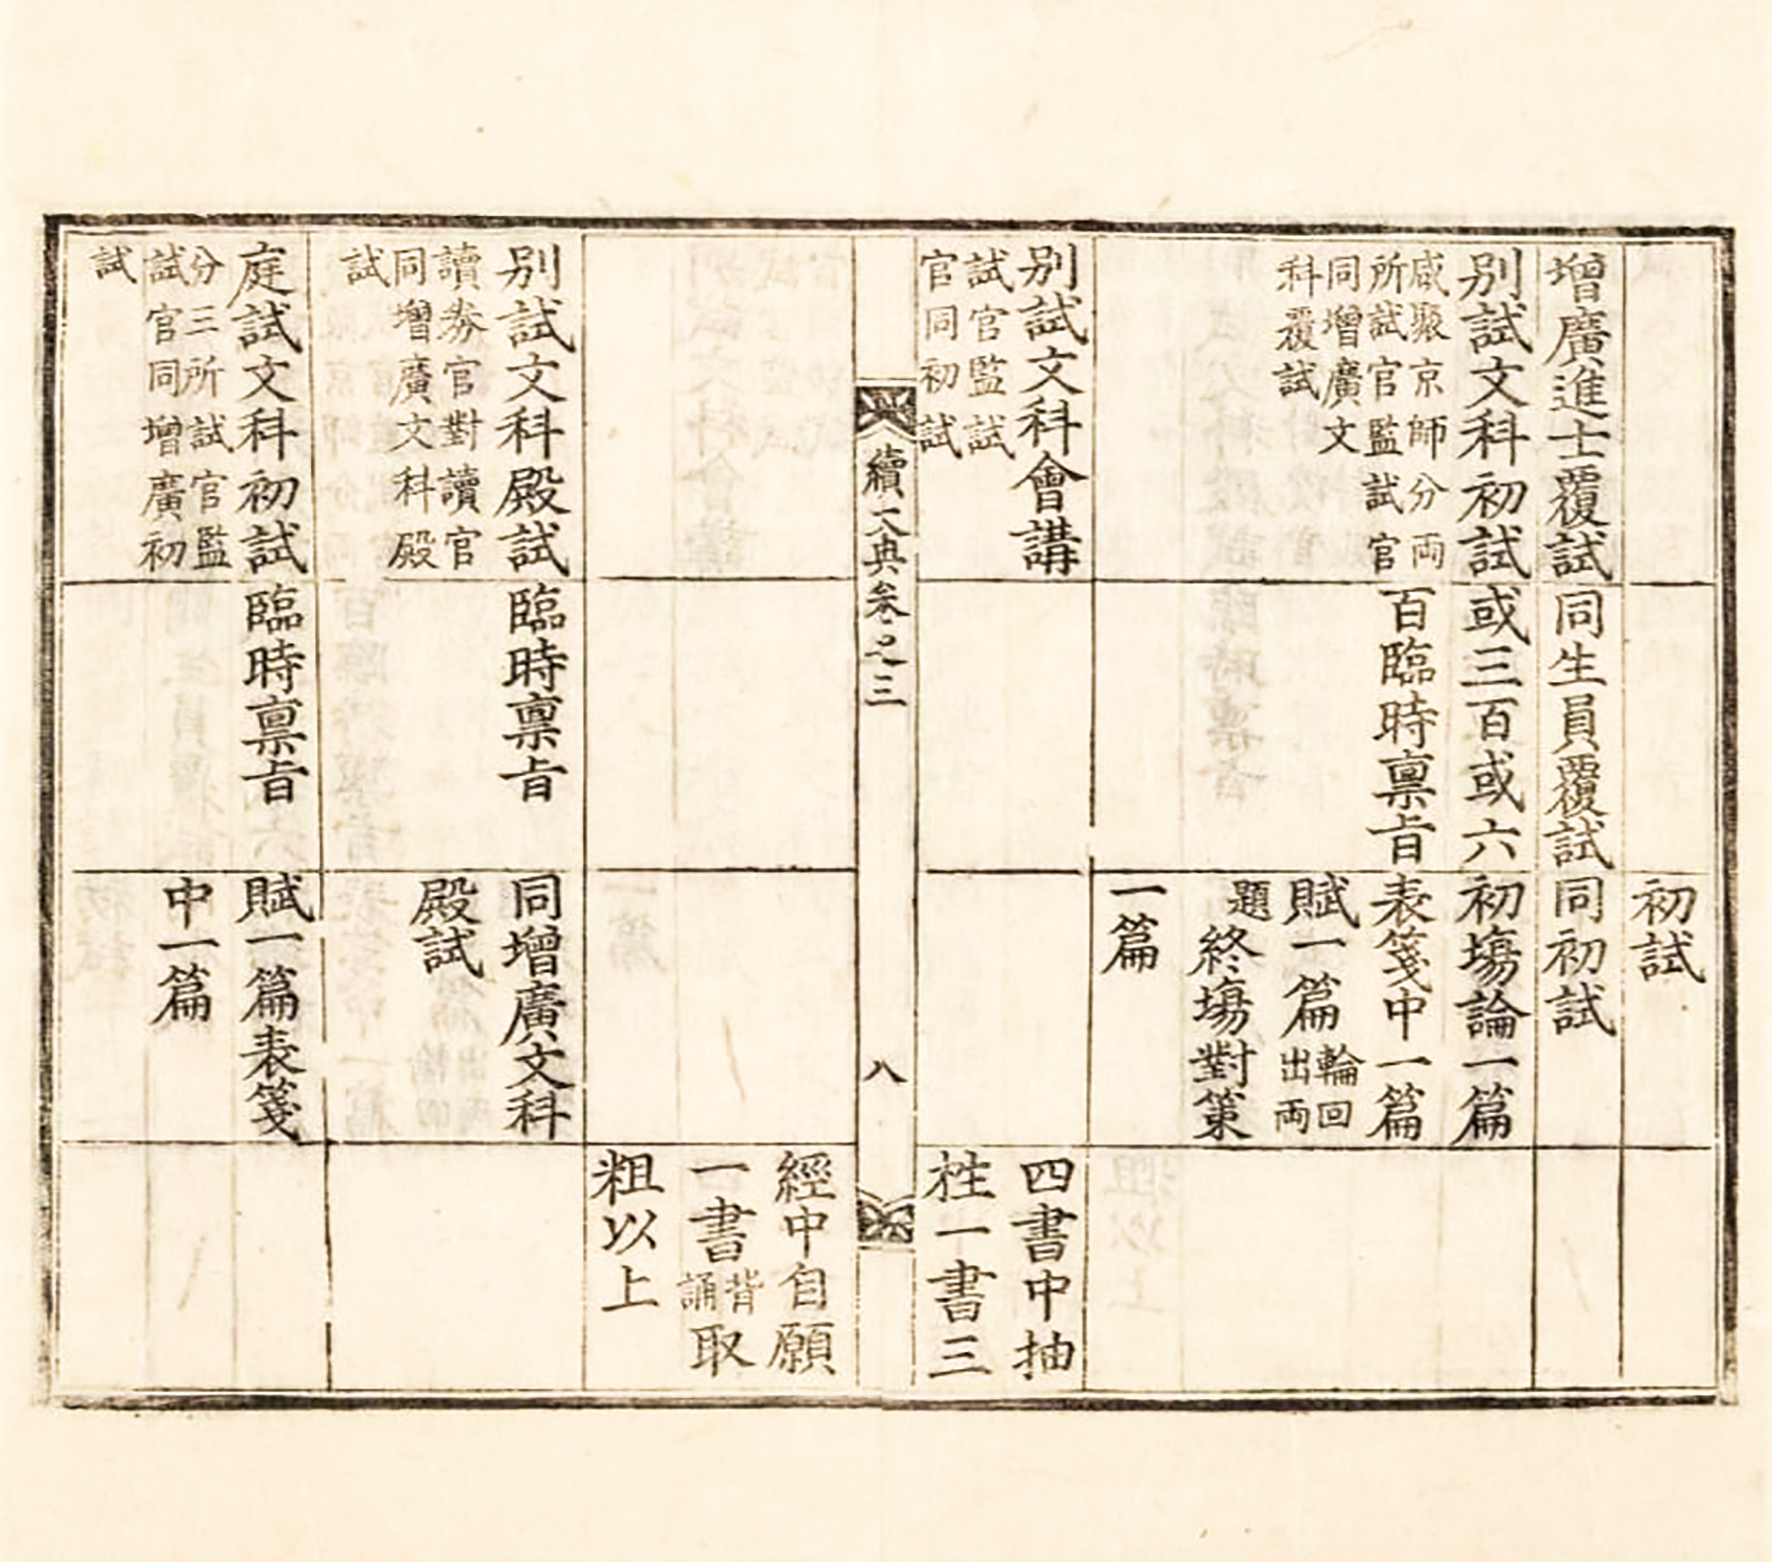 初試
增廣進士覆試
同生員覆試
同初試
別試文科初試
咸聚京師分両
所試官監試官
同增廣文
科覆試
或三百或六
百臨時禀旨
初塲論一篇
表箋中一篇
賦一篇
輪回
出両
題
終塲對策
一篇
別試文科會講
試官監試
官同初試
四書中抽
栍一書三
續大典卷之三
八
經中自願
一書
背
誦
取
粗以上
別試文科殿試
讀券官對讀官
同增廣文科殿
試
臨時禀旨
同增廣文科
殿試
庭試文科初試
分三所試官監
試官同增廣初
試
臨時禀旨
賦一篇表箋
中一篇